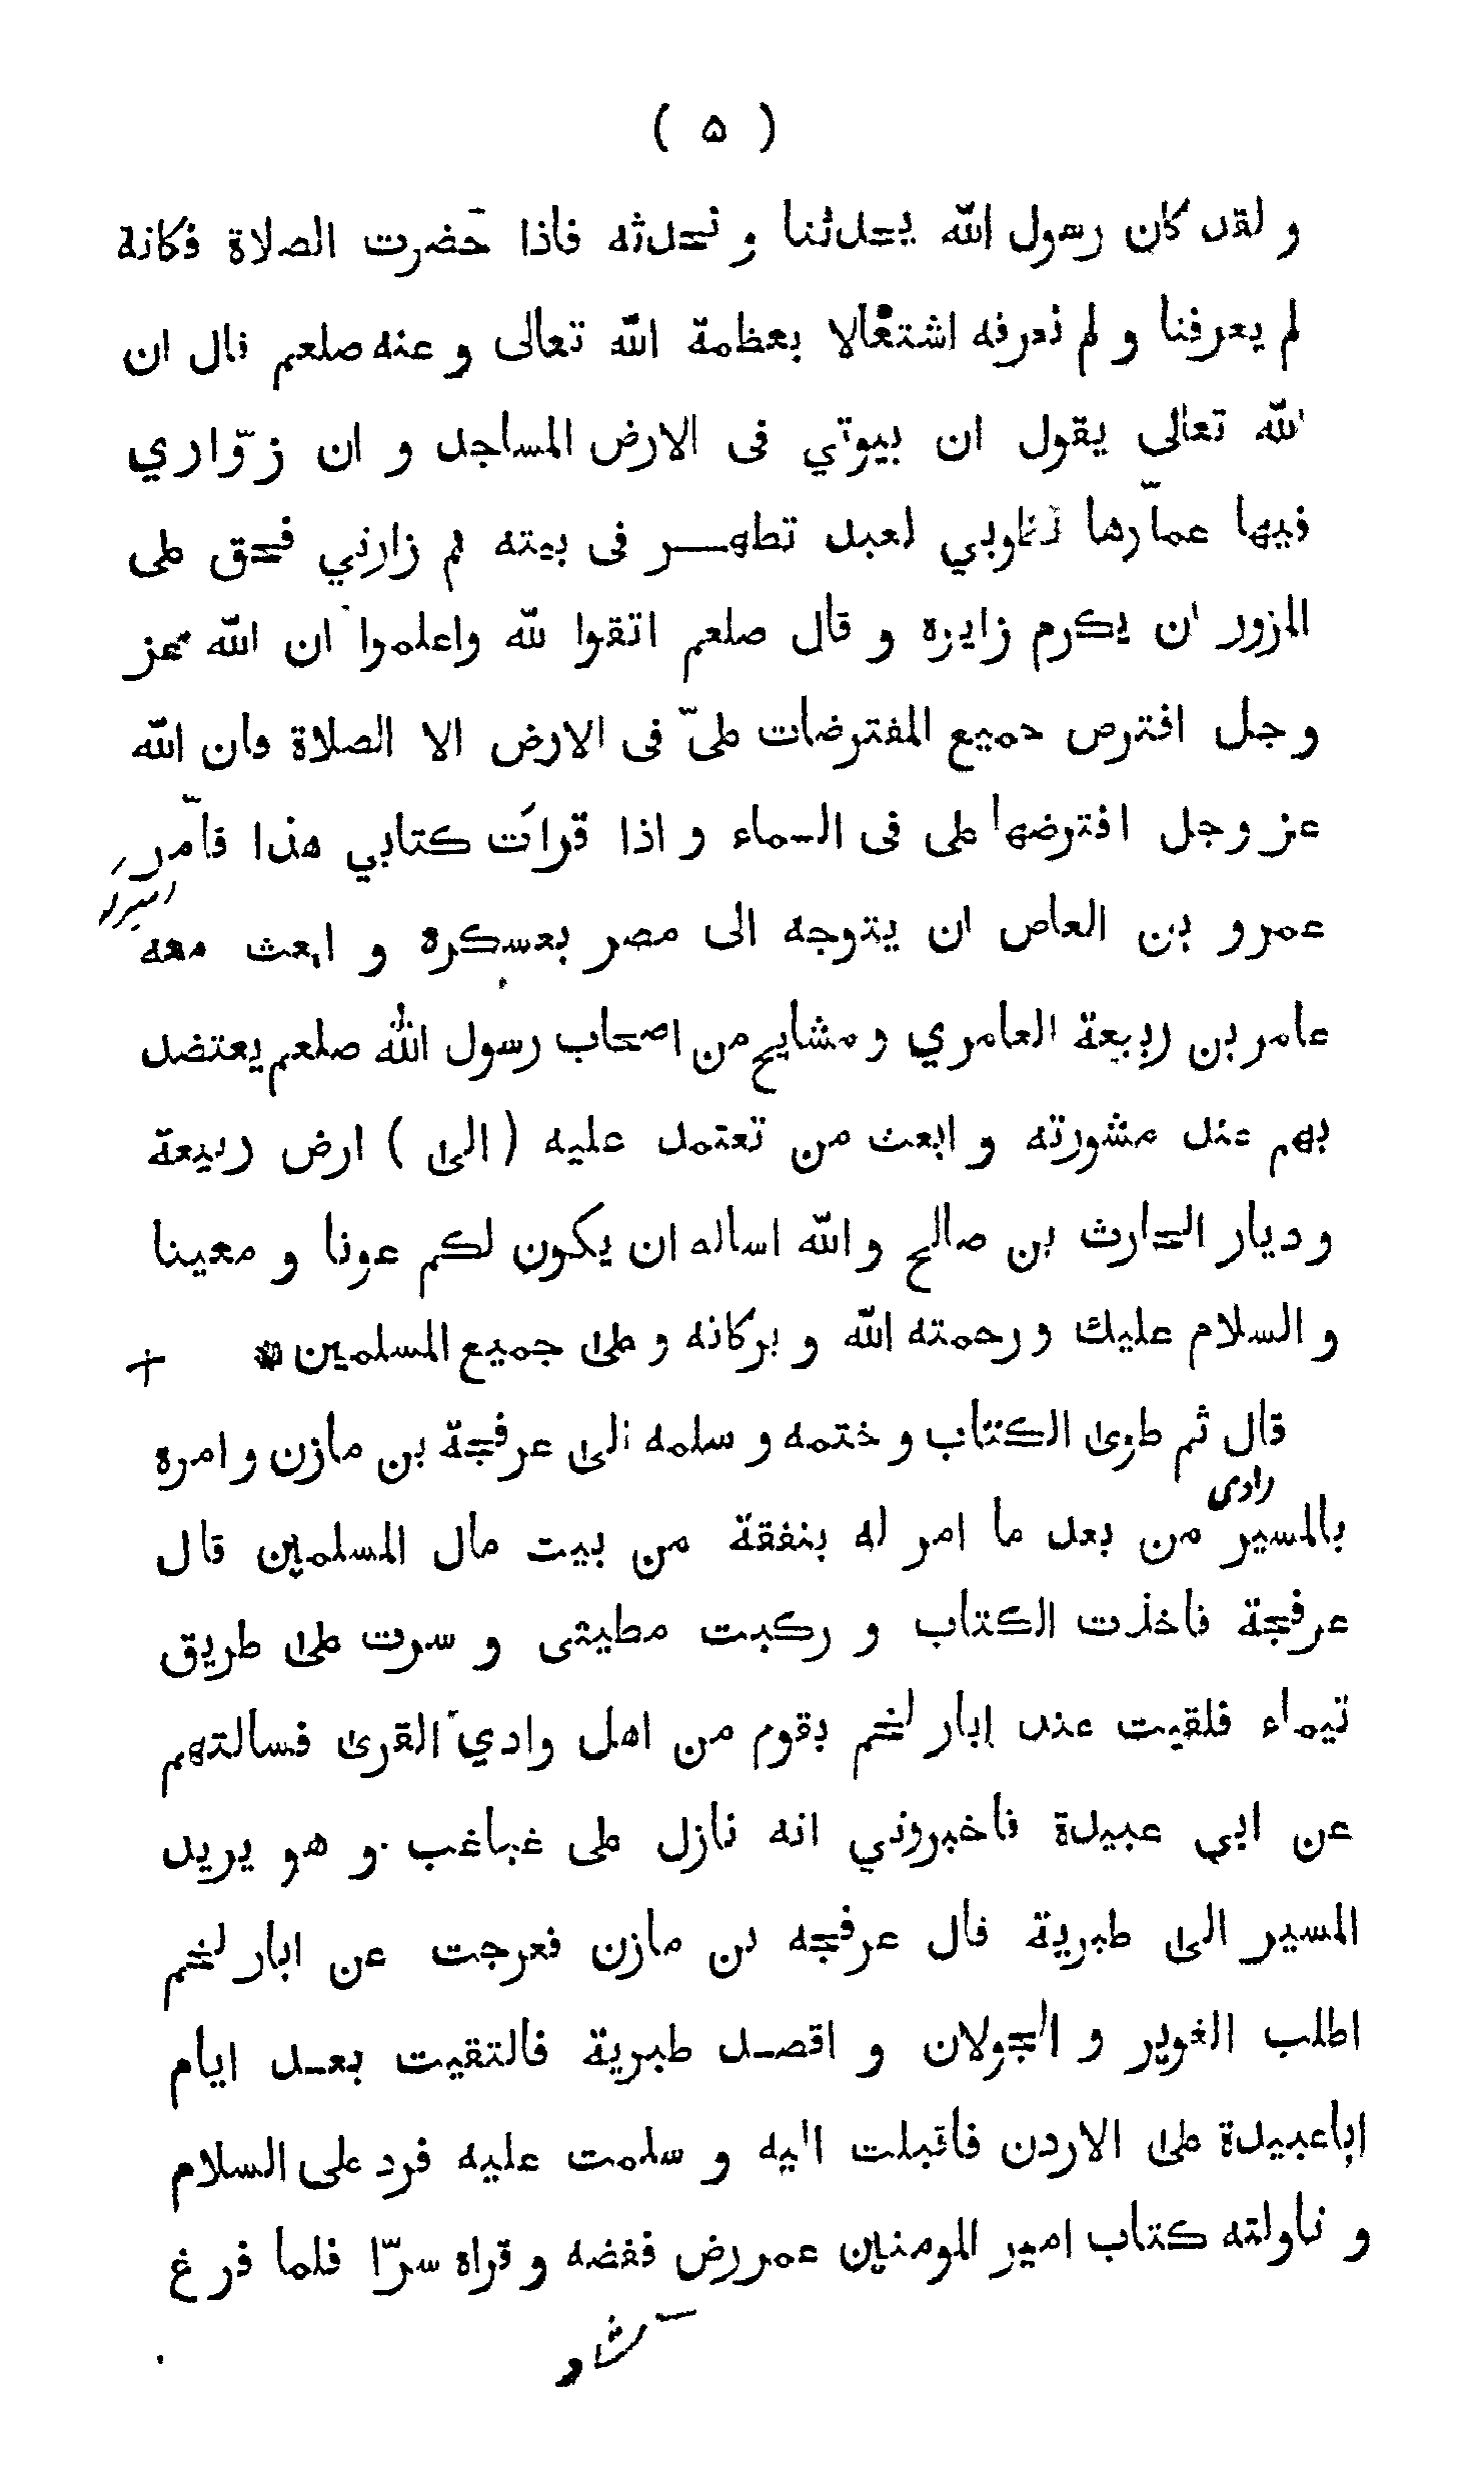 ( ۵ )
و لقد كان رسول الله يحدثنا و نحدثه فاذا حضرت الصلاة فكانه
لم يعرفنا و لم نعرفه اشتغالا بعظمة الله تعالى و عنه صلعم قال ان
الله تعالى يقول ان بيوتي فى الارض المساجد و ان زوّاري
فيها عمّارها فطوبي لعبد تطهـــر فى بيته ثم زارني فحق على
المزور ان يكرم زايره و قال صلعم اتقوا لله واعلموا ان الله عز
و جل افترض جميع المفترضات علىّ فى الارض الا الصلاة فان الله
عز و جل افترضها على فى السماء و اذا قرات كتابي هذا فآمر
عمرو بن العاص ان يتوجه الى مصر بعسكره و ابعث معه
عامر بن ربيعة العامري و مشايخ من اصحاب رسول الله صلعم يعتضد
بهم عند مشورته و ابعث من تعتمد عليه ( الى ) ارض ربيعة
و ديار الحارث بن صالح و الله اساله ان يكون لكم عونا و معينا
و السلام عليك و رحمته الله و بركاته و على جميع المسلمين *
قال ثم طوى الكتاب و ختمه و سلمه الى عرفجة بن مازن و امره
رادى
بالمسير من بعد ما امر له بنفقة من بيت مال المسلمين قال
عرفجة فاخذت الكتاب و ركبت مطيتى و سرت على طريق
تيماء فلقيت عند ابار لخم بقوم من اهل وادي القرى فسالتهم
عن ابي عبيدة فاخبروني انه نازل على غباغب و هو يريد
المسير الى طبرية قال عرفجه بن مازن فعرجت عن ابار لخم
اطلب الغوير و الجولان و اقصد طبرية فالتقيت بعد ايام
اباعبيدة على الاردن فاقبلت اليه و سلمت عليه فرد على السلام
و ناولته كتاب امير المومنين عمر رض ففضه و قراه سرّا فلما فرغ